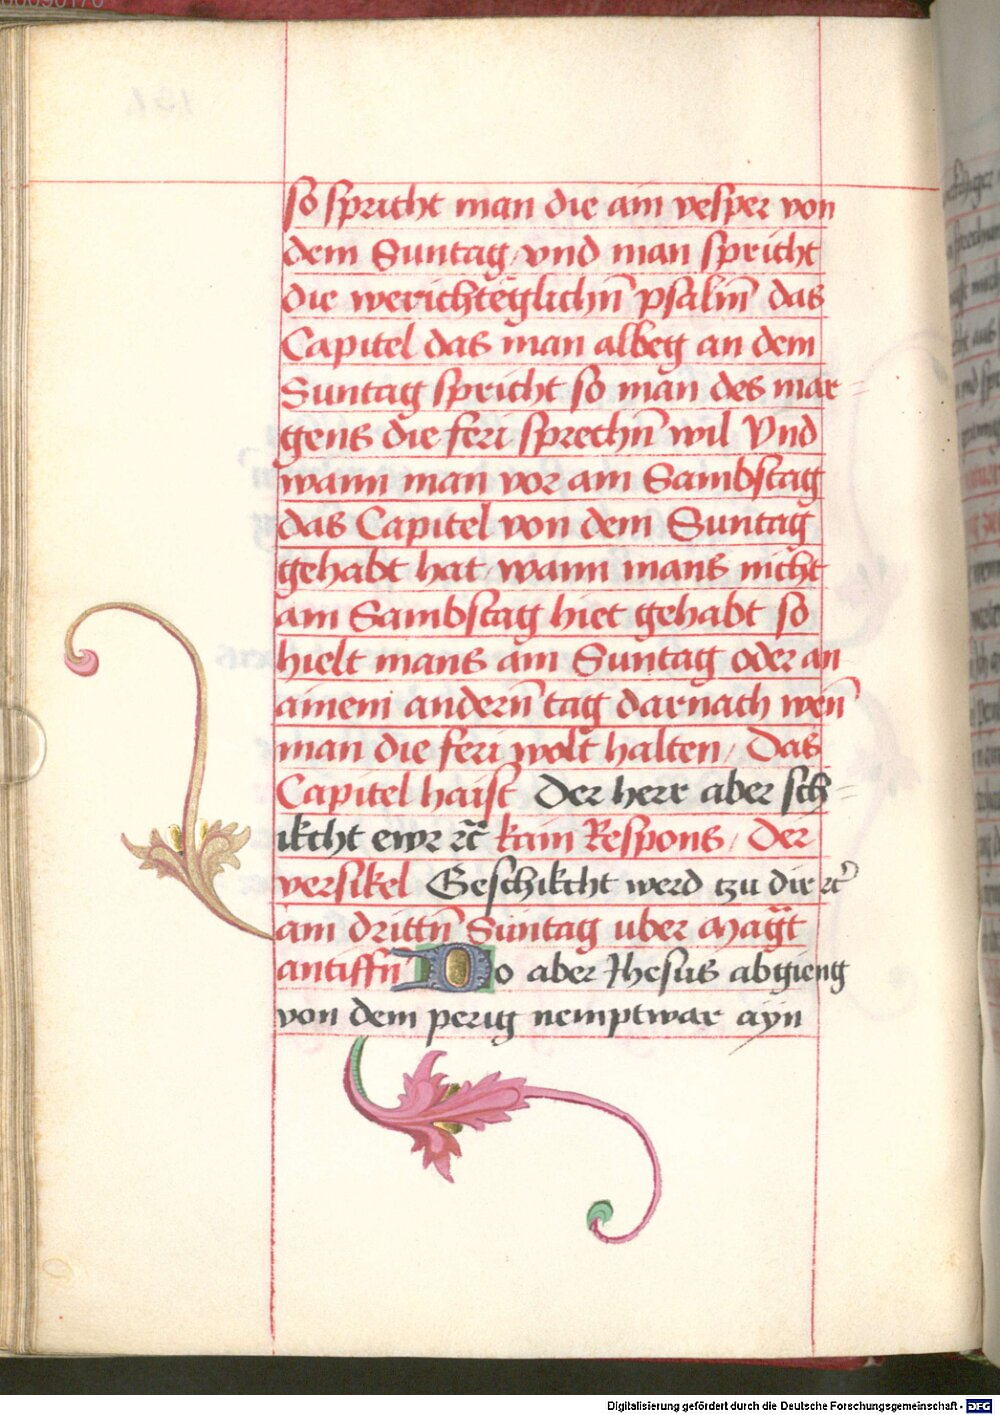 so spricht man die am vesper von
dem Suntag / vnd man spricht
die werichteglichn̄ psalm̄ das
Capitel das man albeg an dem
Suntag spricht so man des mar=
gens die feri sprechn̄ wil Vnd
wann man vor am Sambstag
das Capitel von dem Suntag
gehabt hat wann mans nicht
am Sambstag hiet gehabt so
hielt mans am Suntag oder an
ainem andern̄ tag darnach wen̄
man die feri wolt halten / Das
Capitel haist Der herr aber sch=
ikcht ewr ꝛc̄ kain Respons / Der
versikel Geschikcht werd tzu dir ꝛc
am drittn̄ Suntag uber Mag̈t
antiffn̄ Do aber Jhesus abgieng
von dem perig nemptwar ayn
Digitalisierung gefördert durch die Deutsche Forschungsgemeinschaft - DFG